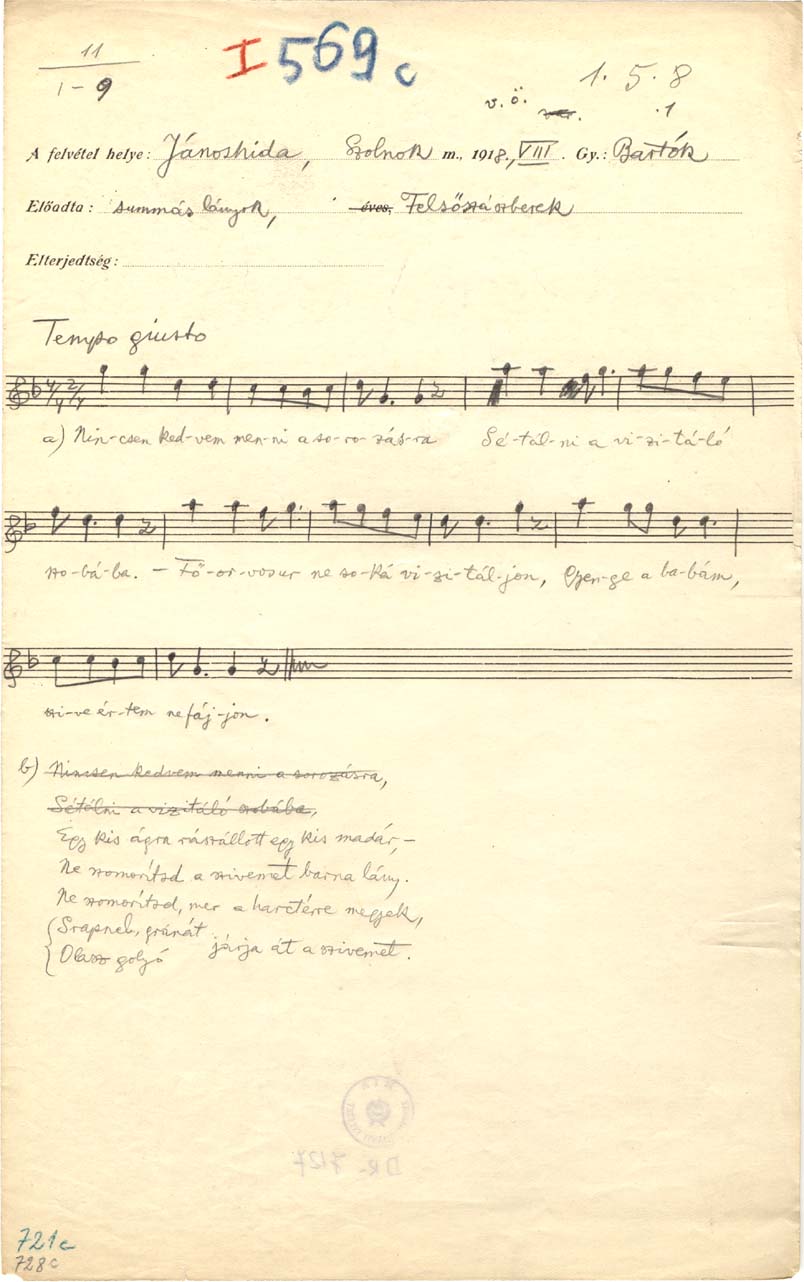 11
1-9
I 569 c
1. 5. 8
v. ö.
.1
A felvétel helye: Jánoshida, Szolnok m., 1918, VIII. Gy.: Bartók
Előadta: summás lányok, éves, Felsőszászberek
Elterjedtség:
Tempo giusto
4/4 2/4
a) Nin-csen ked-vem men-ni a so-ro-zás-ra Sé-tál-ni a vi-zi-tá-ló
szo-bá-ba. - Fő-or-vosur ne so-ká vi-zi-tál-jon, Gyen-ge a ba-bám,
szi-ve ér-tem ne fáj-jon.
b) Nincsen kedvem menni a sorozásra,
Sétálni a vizitáló szobába,
Egy kis ágra rászállott egy kis madár, -
Ne szomorítsd a szivemet barna lány.
Ne szomorítsd, mer a harctérre megyek,
Srapnel, gránát
Olasz golyó járja át a szivemet.
DR. 7127
721c
728c